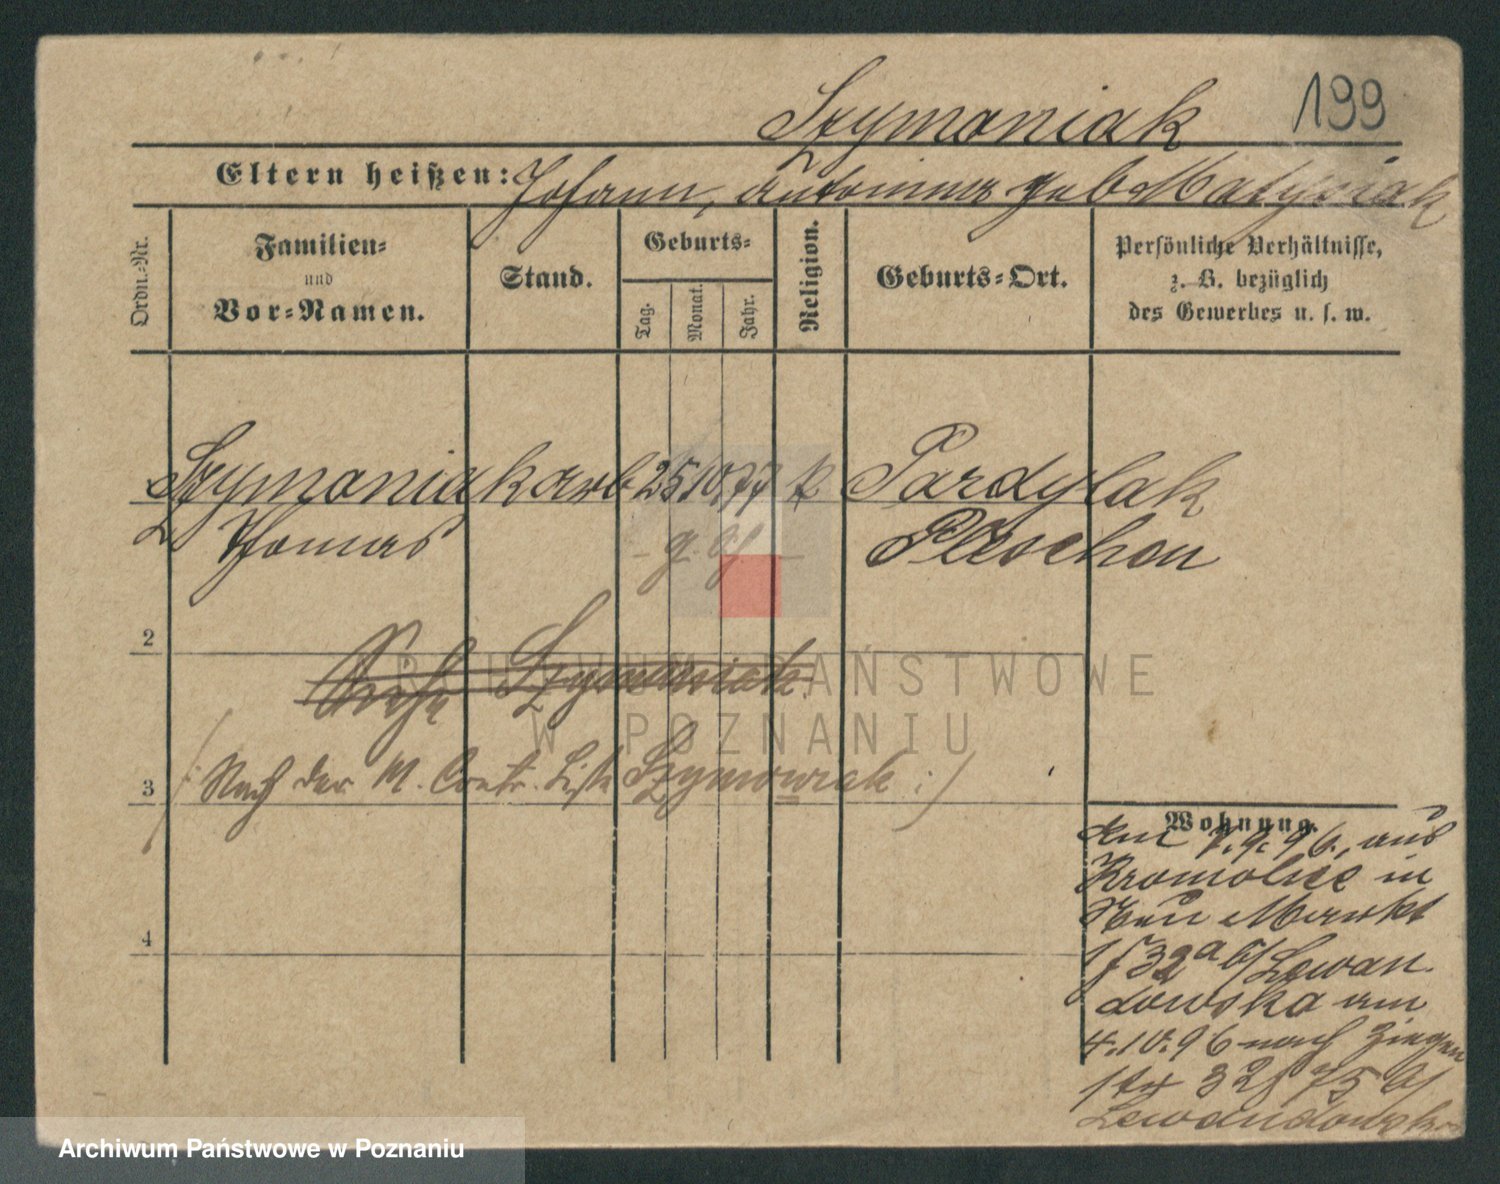 199
Szymaniak
Eltern heißen: Johann, Antonina geb Matysiak
Ordn.-Nr.
Familien-
und
Vor-Namen.
Stand.
Geburts-
Tag.
Monat.
Jahr.
Religion.
Geburts-Ort.
Persönliche Verhältnisse,
z. B. bezüglich
des Gewerbes u. s. w.
Szymaniak Arb 25 10 77 k Pardylak
Thomas Pleschen
2
Szymaniak
3 (: Nach der M. Contr. Liste Szymowiak :)
Wohnung.
den 7.9.96, aus
Kromolice in
Neu Markt
32a b/ Lewan
dowska am
4.10.96 nach Ziegen
str 32 75 b/
Lewandowska
4
ARCHIWUM PAŃSTWOWE
W POZNANIU
Archiwum Państwowe w Poznaniu